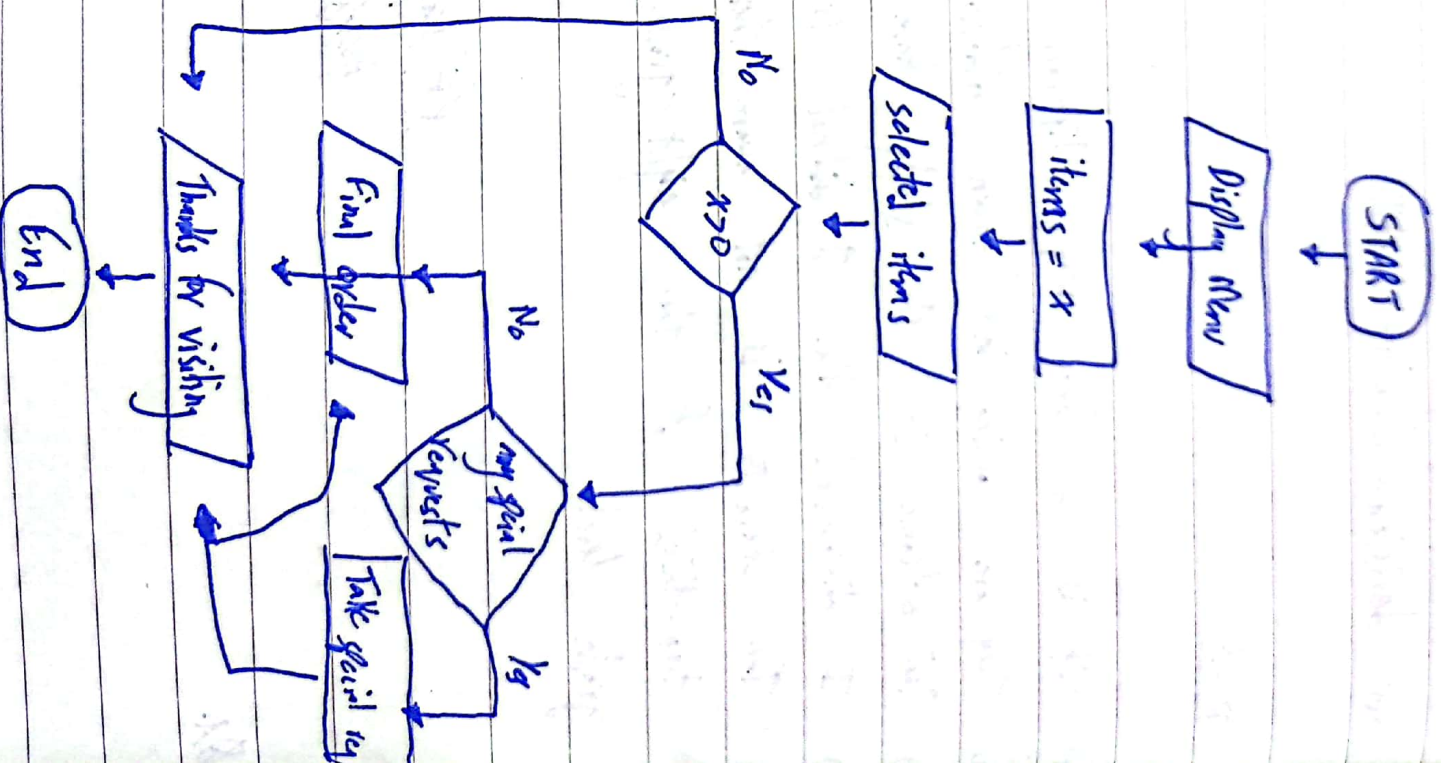 START
Display Menu
items = x
selected items
x>0
No
Yes
any spcial
requests
No
Yes
Final order
Take spcial req
Thanks for visiting
End